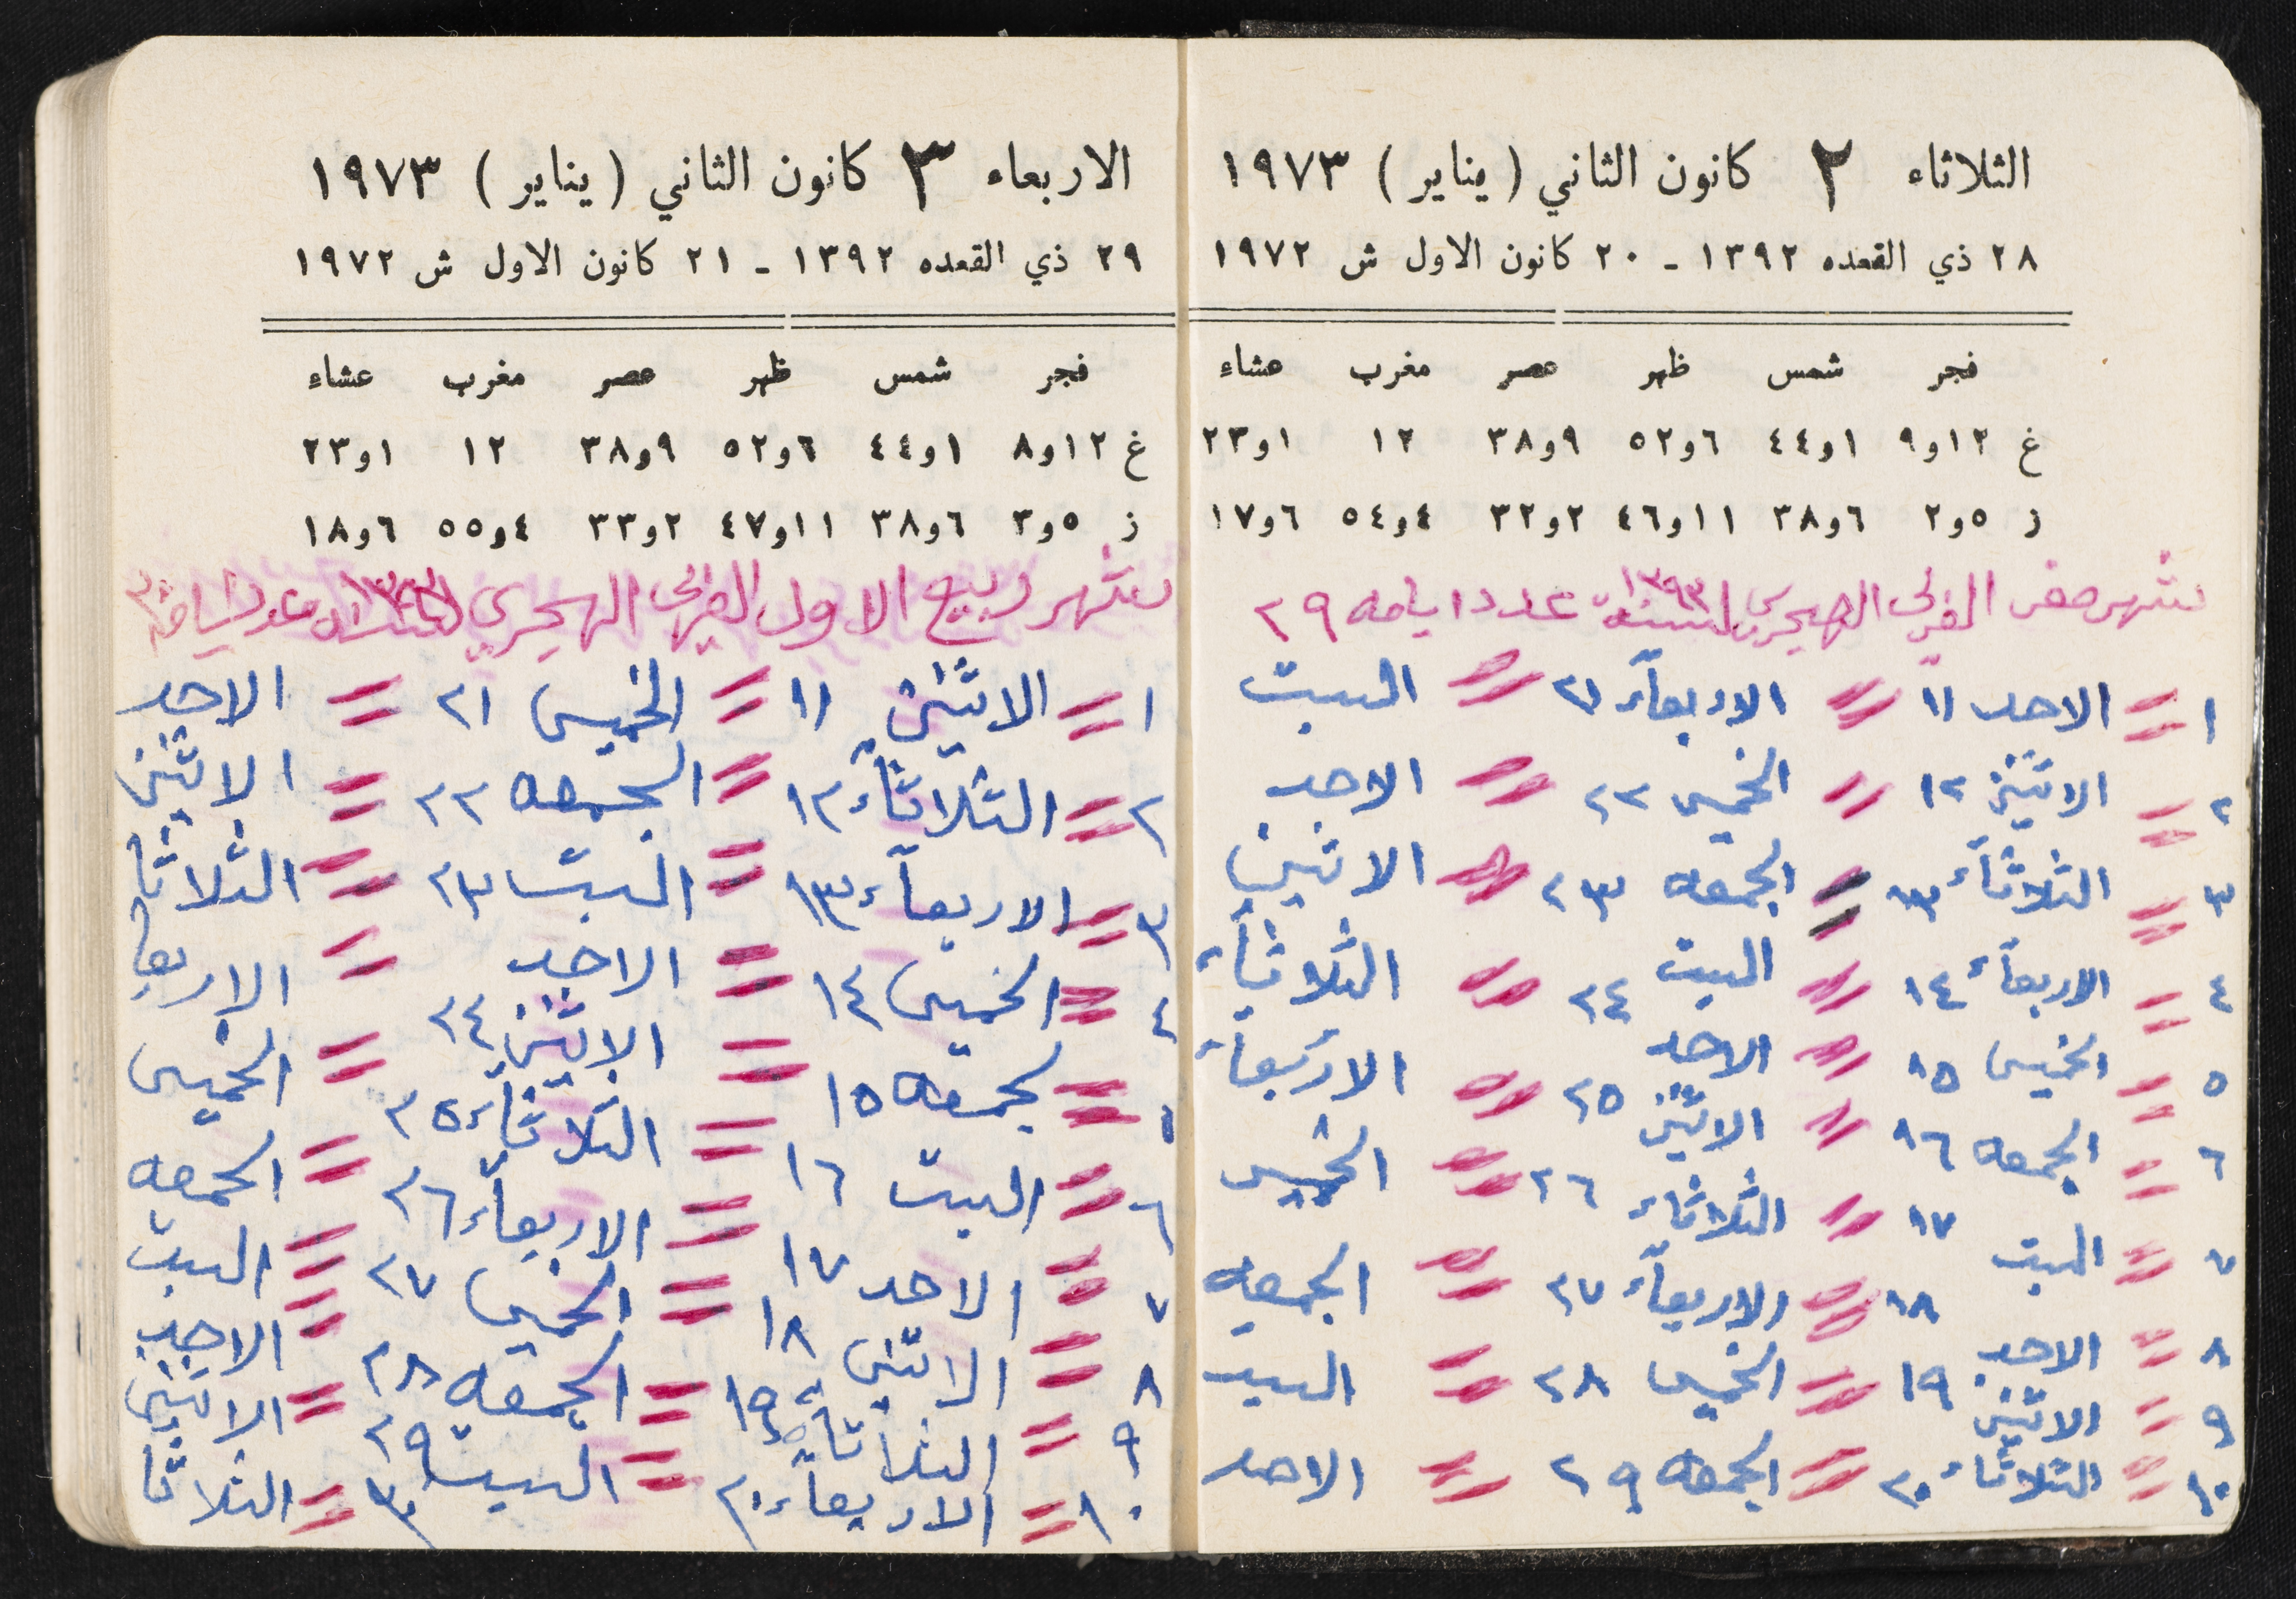 الثلاثاء ٢ كانون الثاني ( يناير ) ١٩٧٣
٢٨ ذي القعده ١٣٩٢ - ٢٠ كانون الاول ش ١٩٧٢
فجر شمس ظهر عصر مغرب عشاء
غ ١٢و٩ ١و٤٤ ٦و٥٢ ٩و٣٨ ١٢ ١و٢٣
ز ٥و٢ ٦و٣٨ ١١و٤٦ ٢و٣٢ ٤و٥٤ ٦و١٧
شهر صفر القمرى الهجرى لسنة ١٣٩٣ عدد ايامه ٢٩
١ = الاحد ١١ = الاربعآء ٢١ = السبت
٢ = الاثنين ١٢ = الخميس ٢٢ = الاحد
٣ = الثلاثآء ١٣ = الجمعه ٢٣ = الاثنين
٤ = الاربعآء ١٤ = السبت ٢٤ = الثلاثآء
٥ = الخميس ١٥ = الاحد ٢٥ = الاربعآء
٦ = الجمعه ١٦ = الاثنين ٢٦ = الخميس
٧ = السبت ١٧ = الثلاثاء ٢٧ = الجمعه
٨ = الاحد ١٨ = الاربعآء ٢٨ = السبت
٩ = الاثنين ١٩ = الخميس ٢٩ = الاحد
١٠ = الثلاثآء ٢٠ = الجمعه
الاربعاء ٣ كانون الثاني ( يناير ) ١٩٧٣
٢٩ ذي القعده ١٣٩٢ - ٢١ كانون الاول ش ١٩٧٢
فجر شمس ظهر عصر مغرب عشاء
غ ١٢و٨ ١و٤٤ ٦و٥٢ ٩و٣٨ ١٢ ١و٢٣
ز ٥و٣ ٦و٣٨ ١١و٤٧ ٢و٣٣ ٤و٥٥ ٦و١٨
شهر ربيع الاول القمرى الهجري
١ = الاثنين ١١ = الخميس ٢١ = الاحد
٢ = الثلاثآء ١٢ = الجمعه ٢٢ = الاثنين
٣ = الاربعآء ١٣ = السبت ٢٣ = الثلاثا
٤ = الخميس ١٤ = الاحد = الاربعا
لجمعه ١٥ = الاثنين ٢٤ = الخميس
٦ = السبت ١٦ = الثلاثآء ٢٥ = الجمعه
٧ = الاحد ١٧ = الاربعآء ٢٦ = السبت
٨ = الاثنين ١٨ = الخميس ٢٧ = الاحد
٩ = الثلاثآء ١٩ = الجمعه ٢٨ = الاثنين
١٠ = الاربعآء ٢٠ = السبت ٢٩ = الثلاثا
٣٠